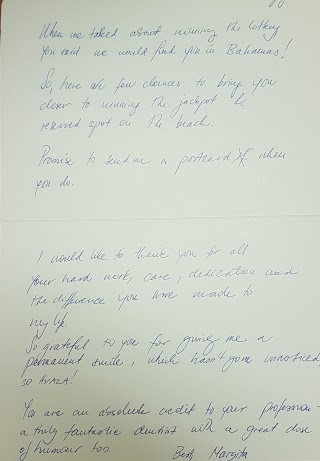 When we talked about winning the lottery
you said we would find you in Bahamas!
So, here are few chances to bring you
closer to winning the jackpot &
reserved spot on the beach.
Promise to send me a postcard if when
you do.
I would like to thank you for all
your hard work, care, dedication and
the difference you have made to
my life.
So grateful to you for giving me a
permanent smile, which hasn't gone unnoticed
so
You are an absolute credit to your profession -
a truly fantastic dentist with a great dose
of humour too.
Best Margita